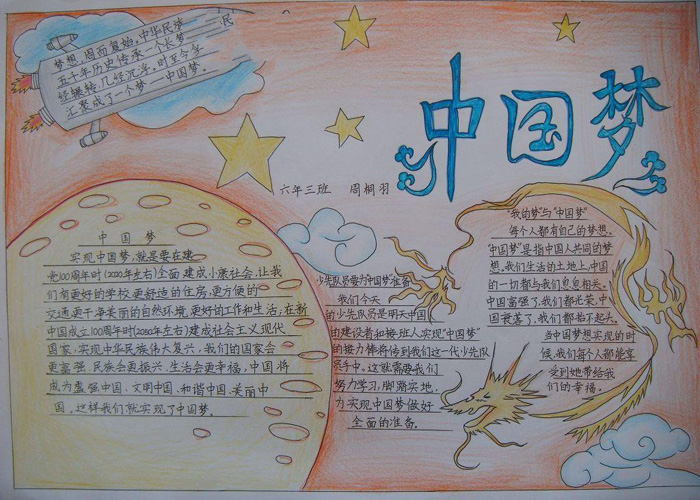 梦想，周而复始，中华民族
民
五千年历史传承一个长梦
经辗转，几经沉浮，时至今冬
汇聚成了一个梦—中国梦。
中国梦
六年三班 周桐羽
中国梦
实现中国梦，就是要在建
党100周年时(2020年左右)全面建成小康社会，让我
们有更好的学校，更舒适的住房，更方便的
交通，更干净美丽的自然环境，更好的工作和生活；在新
中国成立100周年时(2050年左右)建成社会主义现代
国家，实现中华民族伟大复兴，我们的国家会
更富强，民族会更振兴，生活会更幸福，中国将
成为富强中国、文明中国、和谐中国、美丽中
国，这样我们就实现了中国梦。
少先队员要为“中国梦”准备
我们今天
的少先队员是明天中国
的建设者和接班人实现“中国梦”
的接力棒将传到我们这一代少先队
员手中，这就需要我们
努力学习，脚踏实地，
为实现中国梦做好
全面的准备。
“我的梦”与“中国梦”
每个人都有自己的梦想，
“中国梦”是指中国人共同的梦
想，我们生活的土地上，中国
的一切都与我们息息相关。
中国富强了，我们都光荣，中
国衰落了，我们都抬不起头。
当中国梦想实现的时
候，我们每个人都能享
受到她带给我
们的幸福。